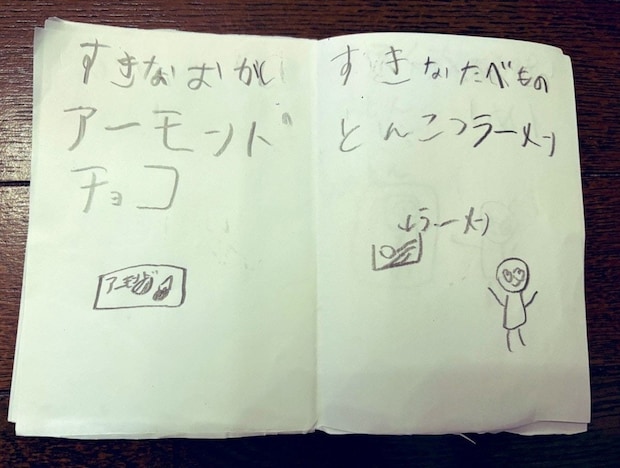 すきなおかし
アーモンド
チョコ
アーモンド
すきなたべもの
とんこつラーメン
↓ラーメン